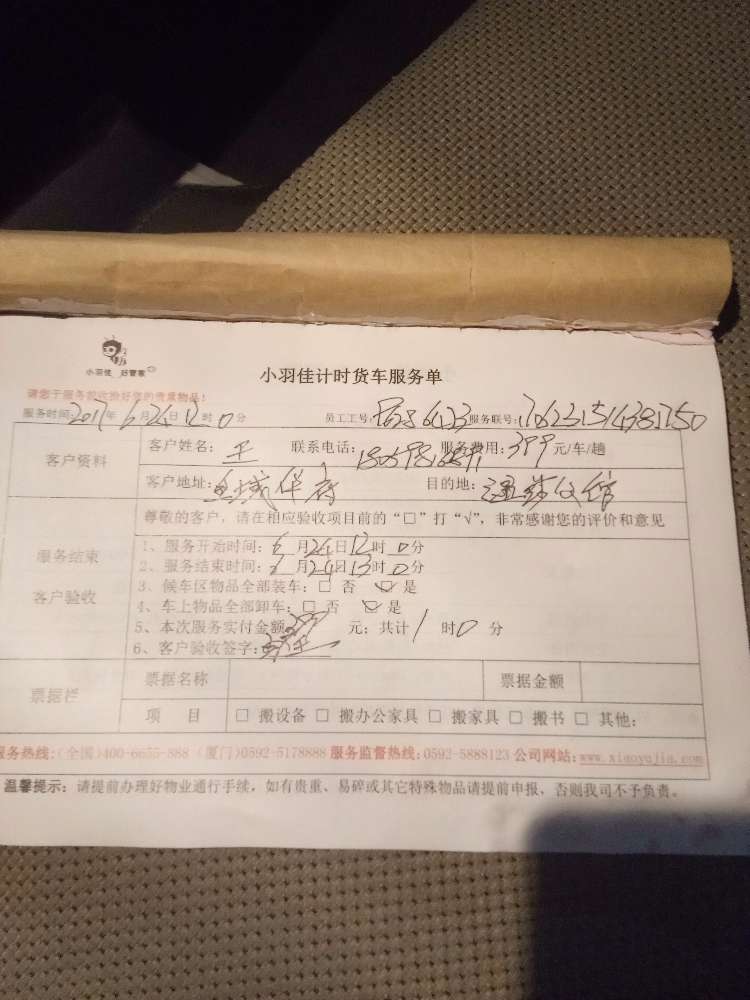 小羽佳 好管家
小羽佳计时货车服务单
请您于服务前收验好您的贵重物品!
服务时间:2017年 6月24日12时0分 员工工号: 服务联号:
客户资料
客户姓名: 王 联系电话: 服务费用:399元/车/趟
客户地址: 目的地:
尊敬的客户,请在相应验收项目前的“□”打“√”,非常感谢您的评价和意见
服务结束
客户验收
1、服务开始时间:6月24日12时0分
2、服务结束时间:6月24日13时0分
3、候车区物品全部装车:□ 否 ☑ 是
4、车上物品全部卸车:□ 否 ☑ 是
5、本次服务实付金额 元;共计1时0分
6、客户验收签字:
票据栏
票据名称 票据金额
项 目 □ 搬设备 □ 搬办公家具 □ 搬家具 □ 搬书 □ 其他:
服务热线:(全国)400-6655-888 (厦门)0592-5178888 服务监督热线:0592-5888123 公司网站:www.xiaoyujia.com
温馨提示:请提前办理好物业通行手续,如有贵重、易碎或其它特殊物品请提前申报,否则我司不予负责。